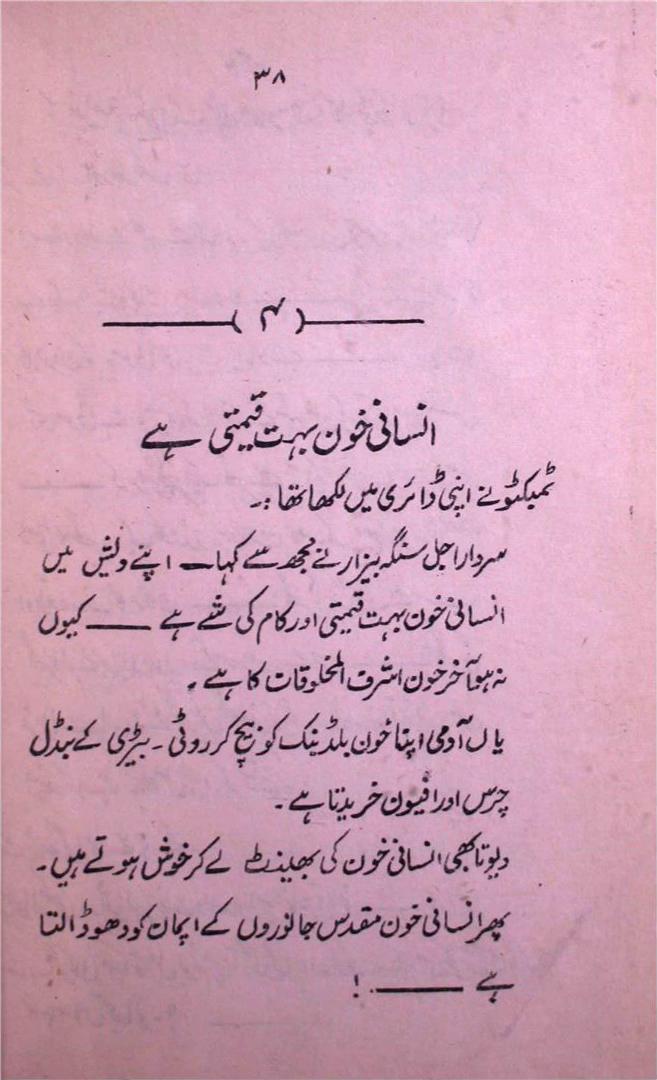 ۳۸
(۴)
انسانی خون بہت قیمتی ہے
ٹمبکٹو نے اپنی ڈائری میں لکھا تھا :۔
سردار اجل سنگھ بیزار نے مجھ سے کہا — اپنے دیش میں
انسانی خون بہت قیمتی اور کام کی شے ہے —— کیوں
نہ ہو آخر خون اشرف المخلوقات کا ہے ۔
یاں آدمی اپنا خون بلڈ بنک کو بیچ کر روٹی ۔ بیڑی کے بنڈل
چرس اور افیون خریدتا ہے ۔
دیوتا بھی انسانی خون کی بھینٹ لے کر خوش ہوتے ہیں ۔
پھر انسانی خون مقدس جانوروں کے اپمان کو دھو ڈالتا
ہے ——— . !